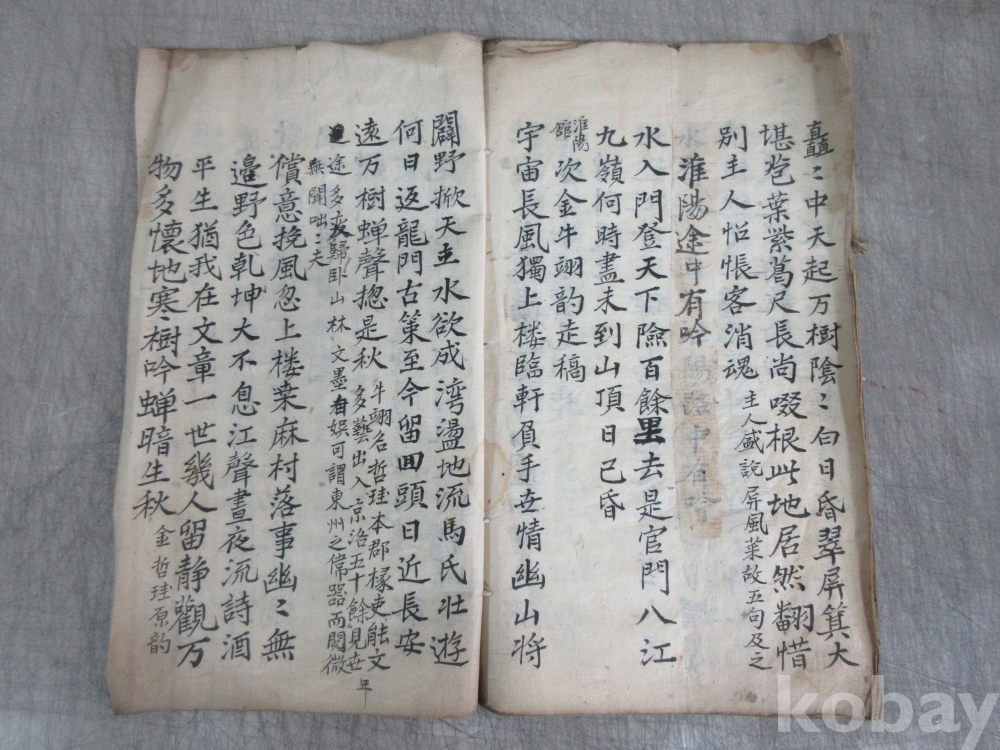 矗〻中天起万樹陰〻白日昏翠屏箕大
堪苞葉紫葛尺長尚啜根此地居然翻惜
別主人怊悵客消魂 主人盛說屏風菜故五句及之
淮陽途中有吟
水入門登天下險百餘里去是官門八江
九嶺何時盡未到山頂日已昏
淮陽館次金牛翊韵走稿
宇宙長風獨上楼臨軒負手世情幽山将
闢野掀天立水欲成湾盪地流馬氏壮遊
何日返龍門古策至今留回頭日近長安
遠万樹蝉聲揔是秋 牛翊名哲珪本郡椽吏能文
多藝出入京洛五十餘年見世
途多歸卧山林文墨自娱可謂東州之偉器而閱微
無聞咄〻夫
償意挽風忽上楼桒麻村落事幽〻無
邉野色乹坤大不息江聲晝夜流詩酒
平生猶我在文章一世幾人留静觀万
物多懷地寒樹吟蝉暗生秋 金哲珪原韵
kobay